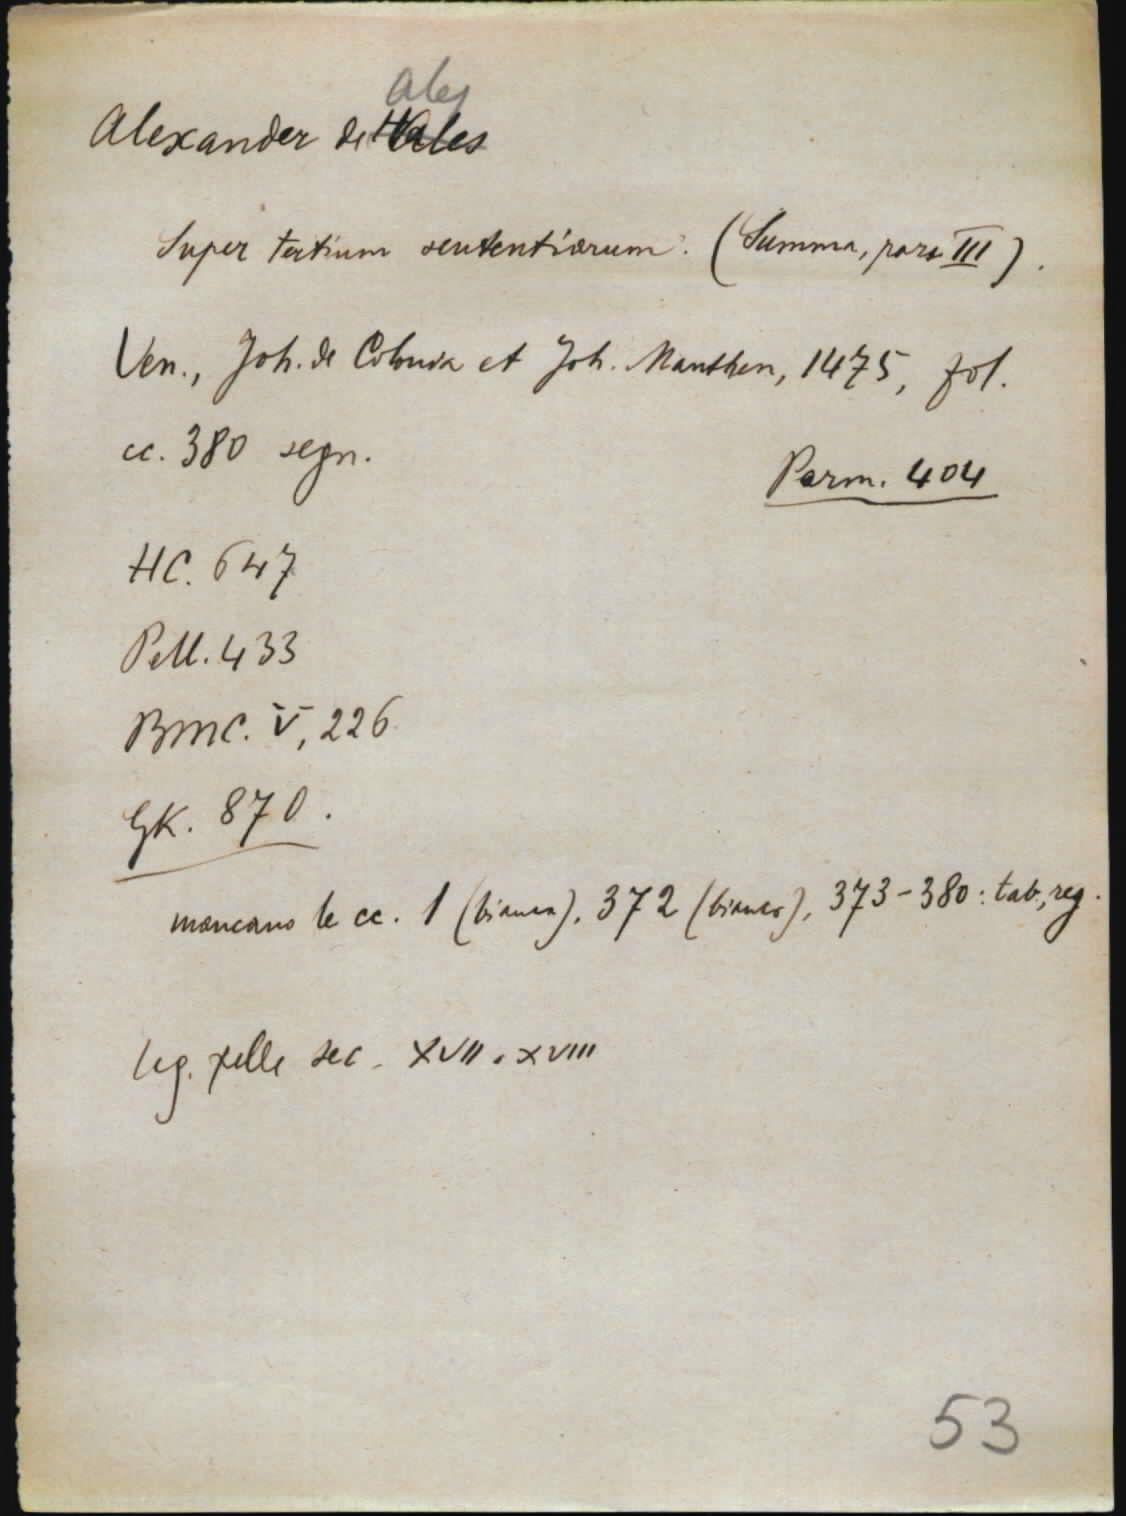 Ales
Alexander de Hales
Super tertium sententiarum. (Summa, pars III).
Ven., Joh. de Colonia et Joh. Manthen, 1475, fol.
cc. 380 segn.
Parm. 404
HC. 647
Pell. 433
BMC. V, 226
GK. 870.
mancano le cc. 1 (bianca), 372 (bianca), 373-380: tab., reg.
leg. pelle sec. XVII-XVIII
53